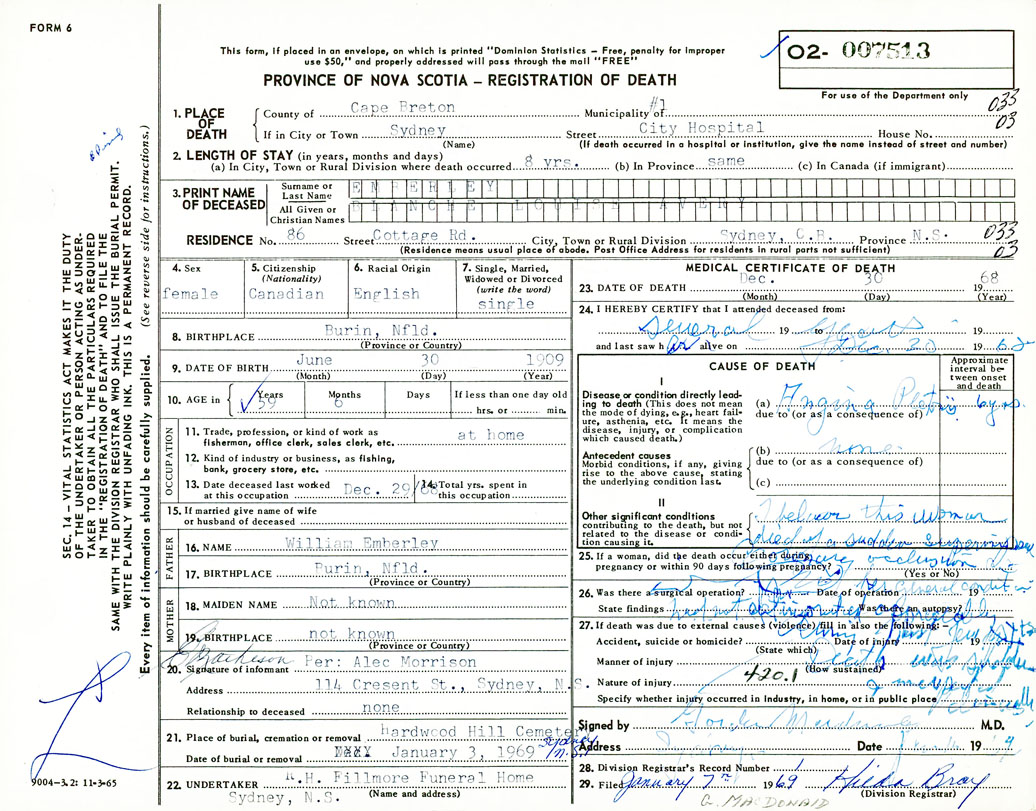 FORM 6
This form, if placed in an envelope, on which is printed "Dominion Statistics – Free, penalty for improper
use $50," and properly addressed will pass through the mail "FREE"
PROVINCE OF NOVA SCOTIA – REGISTRATION OF DEATH
02- 007513
For use of the Department only
033
03
1. PLACE OF DEATH
County of Cape Breton Municipality of #1
If in City or Town Sydney Street City Hospital House No.
(Name) (If death occurred in a hospital or institution, give the name instead of street and number)
2. LENGTH OF STAY (in years, months and days)
(a) In City, Town or Rural Division where death occurred 8 yrs. (b) In Province same (c) In Canada (if immigrant)
3. PRINT NAME OF DECEASED
Surname or Last Name EMBERLEY
All Given or Christian Names BLANCHE LOUISE AVERY
RESIDENCE No. 86 Street Cottage Rd. City, Town or Rural Division Sydney, C.B. Province N.S.
033
03
(Residence means usual place of abode. Post Office Address for residents in rural parts not sufficient)
4. Sex
female
5. Citizenship
(Nationality)
Canadian
6. Racial Origin
English
7. Single, Married,
Widowed or Divorced
(write the word)
single
8. BIRTHPLACE Burin, Nfld.
(Province or Country)
9. DATE OF BIRTH June 30 1909
(Month) (Day) (Year)
10. AGE in Years 59 Months 6 Days If less than one day old
hrs. or min.
OCCUPATION
11. Trade, profession, or kind of work as at home
fisherman, office clerk, sales clerk, etc.
12. Kind of industry or business, as fishing,
bank, grocery store, etc.
13. Date deceased last worked Dec. 29/68 14. Total yrs. spent in
at this occupation this occupation
15. If married give name of wife
or husband of deceased
FATHER
16. NAME William Emberley
17. BIRTHPLACE Burin, Nfld.
(Province or Country)
MOTHER
18. MAIDEN NAME Not known
19. BIRTHPLACE not known
(Province or Country)
Matheson Per: Alec Morrison
20. Signature of informant
Address 114 Cresent St., Sydney, N.S.
Relationship to deceased none
21. Place of burial, cremation or removal hardwood Hill Cemetery
Sydney N.S.
Date of burial or removal January 3, 1969
22. UNDERTAKER R.H. Fillmore Funeral Home
Sydney, N.S. (Name and address)
MEDICAL CERTIFICATE OF DEATH
23. DATE OF DEATH Dec. 30 1968
(Month) (Day) (Year)
24. I HEREBY CERTIFY that I attended deceased from:
several 19 to years 19
and last saw her alive on Dec 30 1968
CAUSE OF DEATH
Approximate interval between onset and death
I
Disease or condition directly leading to death (This does not mean the mode of dying, e.g., heart failure, asthenia, etc. It means the disease, injury, or complication which caused death.)
(a) Angina Pectoris 6 yrs
due to (or as a consequence of)
Antecedent causes
Morbid conditions, if any, giving rise to the above cause, stating the underlying condition last.
(b) none
due to (or as a consequence of)
(c)
II
Other significant conditions contributing to the death, but not related to the disease or condition causing it.
I believe this woman
died of a sudden
occlusion
25. If a woman, did the death occur either during
pregnancy or within 90 days following pregnancy?
(Yes or No)
general condition
26. Was there a surgical operation? Date of operation 19
State findings Was there an autopsy?
had not
27. If death was due to external causes (violence) fill in also the following: –
Accident, suicide or homicide? Date of injury 19
(State which)
Manner of injury
(How sustained)
420.1
Nature of injury
Specify whether injury occurred in Industry, in home, or in public place
Signed by M.D.
Address Date 19
28. Division Registrar's Record Number 1
29. Filed January 7th 1969 Hilda Bray
(Division Registrar)
G. MACDONALD
SEC. 14 – VITAL STATISTICS ACT MAKES IT THE DUTY
OF THE UNDERTAKER OR PERSON ACTING AS UNDER-
TAKER TO OBTAIN ALL THE PARTICULARS REQUIRED
IN THE "REGISTRATION OF DEATH" AND TO FILE THE
SAME WITH THE DIVISION REGISTRAR WHO SHALL ISSUE THE BURIAL PERMIT.
WRITE PLAINLY WITH UNFADING INK. THIS IS A PERMANENT RECORD.
Every item of information should be carefully supplied. (See reverse side for instructions.)
9004-3.2: 11-3-65